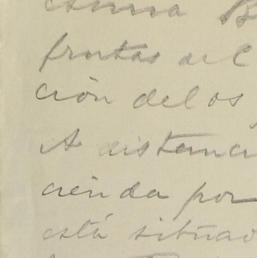 Anna B
frutas del
ción delos
A distanci
cienda por
está situao